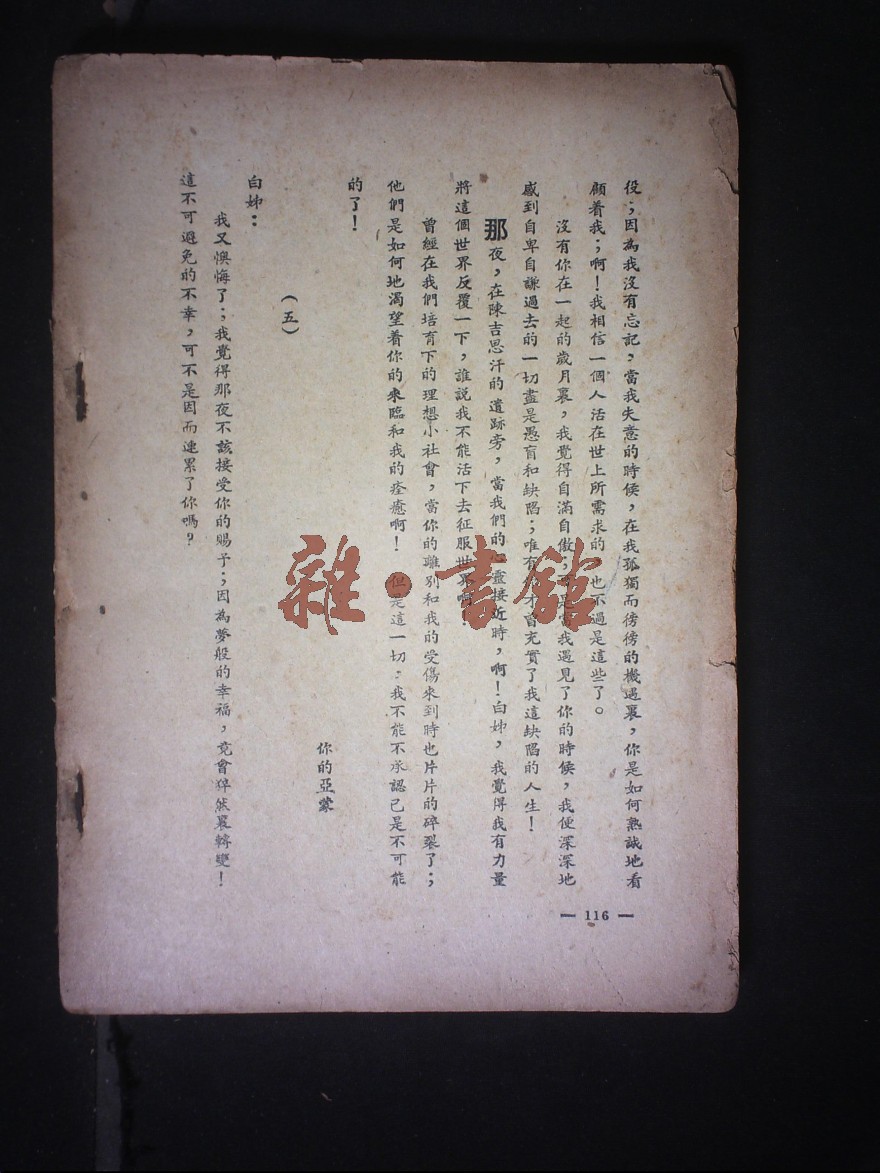 役；因為我沒有忘記，當我失意的時候，在我孤獨而徬徬的機遇裏，你是如何熟誠地看
顧着我；啊！我相信一個人活在世上所需求的 也不過是這些了。
沒有你在一起的歲月裏，我覺得自滿自傲， 當我遇見了你的時候，我便深深地
感到自卑自謙過去的一切盡是愚盲和缺陷；唯有 才會充實了我這缺陷的人生！
那夜，在陳吉思汗的遺跡旁，當我們的 靈接近時，啊！白姊，我覺得我有力量
將這個世界反覆一下，誰說我不能活下去征服世界啊！
曾經在我們培育下的理想小社會，當你的離別和我的受傷來到時也片片的碎裂了；
他們是如何地渴望着你的來臨和我的痊癒啊！但是這一切，我不能不承認已是不可能
的了！
你的亞蒙
（五）
白姊：
我又懊悔了；我覺得那夜不該接受你的賜予；因為夢般的幸福，竟會猝然裏轉變！
這不可避免的不幸，可不是因而連累了你嗎？
— 116 —
雜·書館